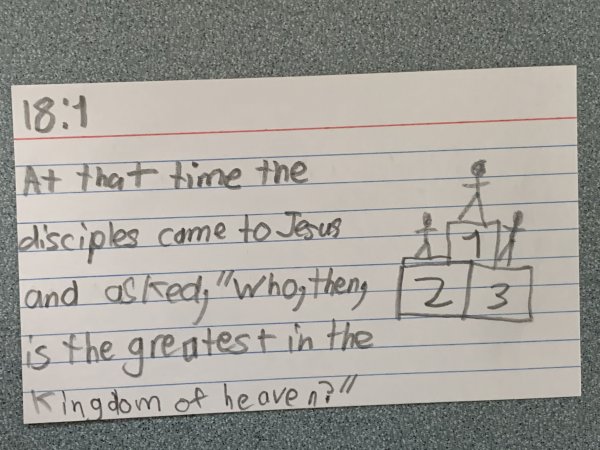 18:1
At that time the
disciples come to Jesus
and asked, "Who, then,
is the greatest in the
kingdom of heaven?"
1
2 3